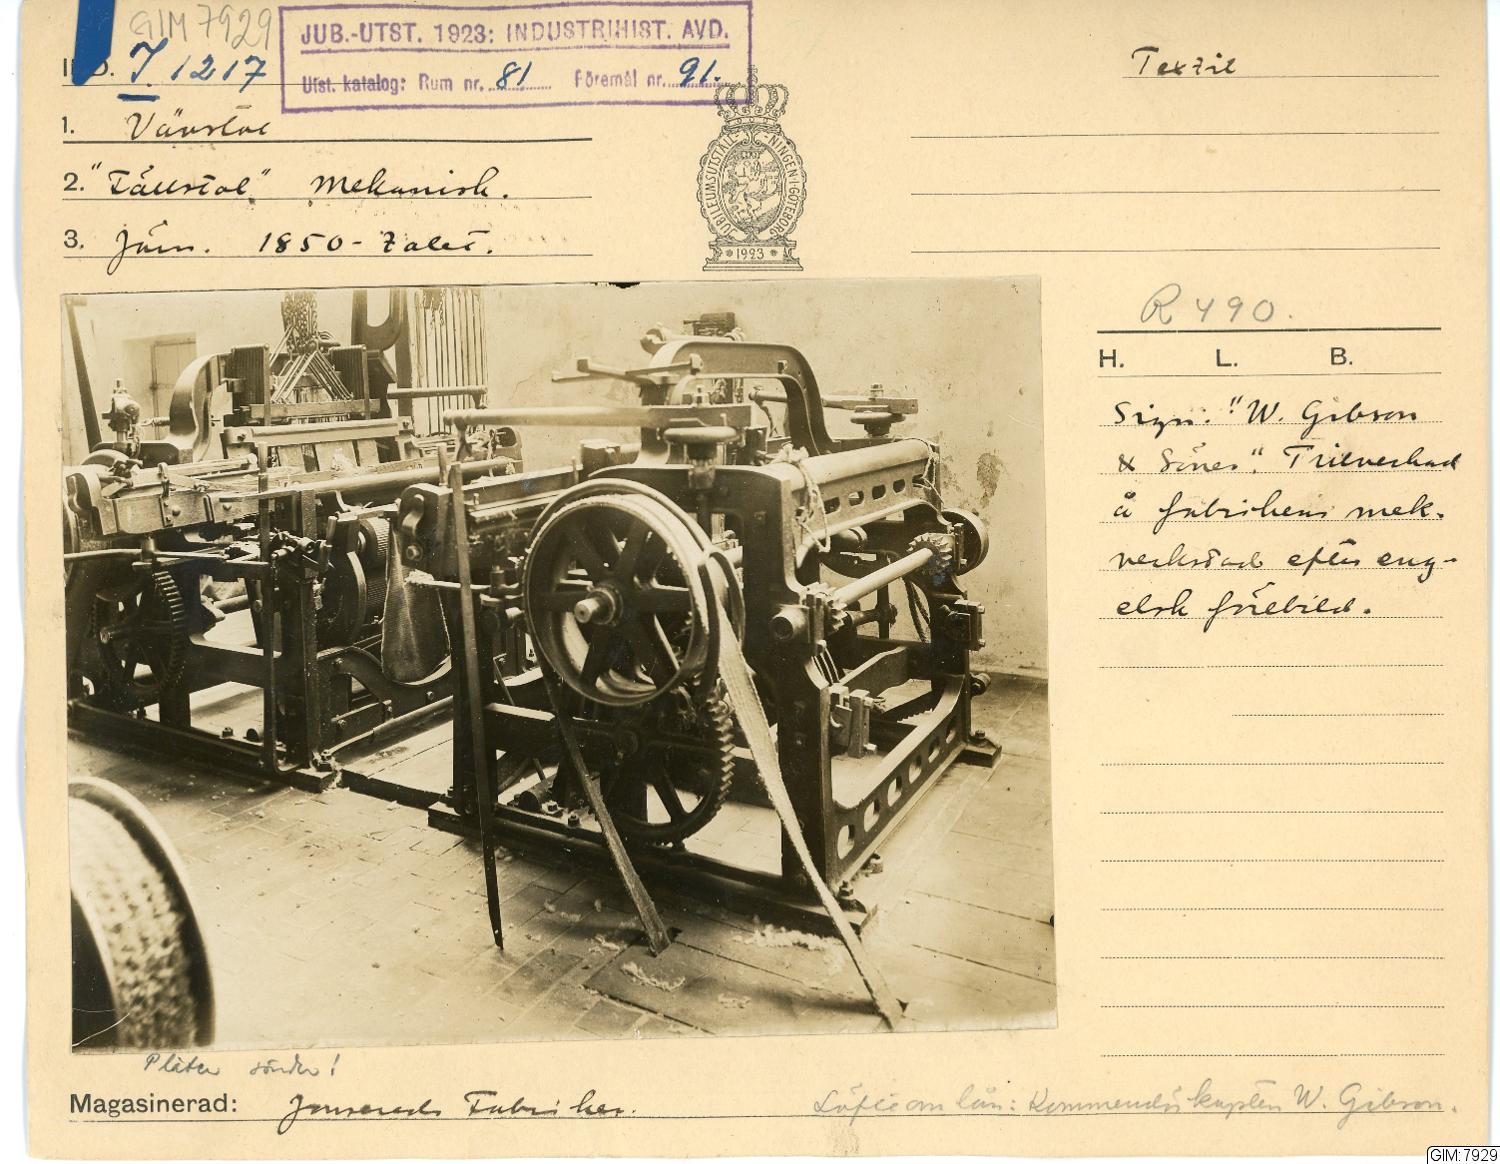 GIM 7929
JUB.-UTST. 1923: INDUSTRIHIST. AVD.
Utst. katalog: Rum nr. 81 Föremål nr. 91.
J 1217
Textil
1. Vävstol
2. "Fällstol" Mekanisk.
3. Järn. 1850-talet.
JUBILEUMSUTSTÄLLNINGEN I GÖTEBORG
1923
R 490.
H. L. B.
Sign: "W. Gibson
& Söner". Tillverkad
å fabrikens mek.
verkstad efter eng-
elsk förebild.
Plåten sönder!
Magasinerad: Jonsereds Fabriker.
Löfte om lån: W. Gibson.
GIM:7929